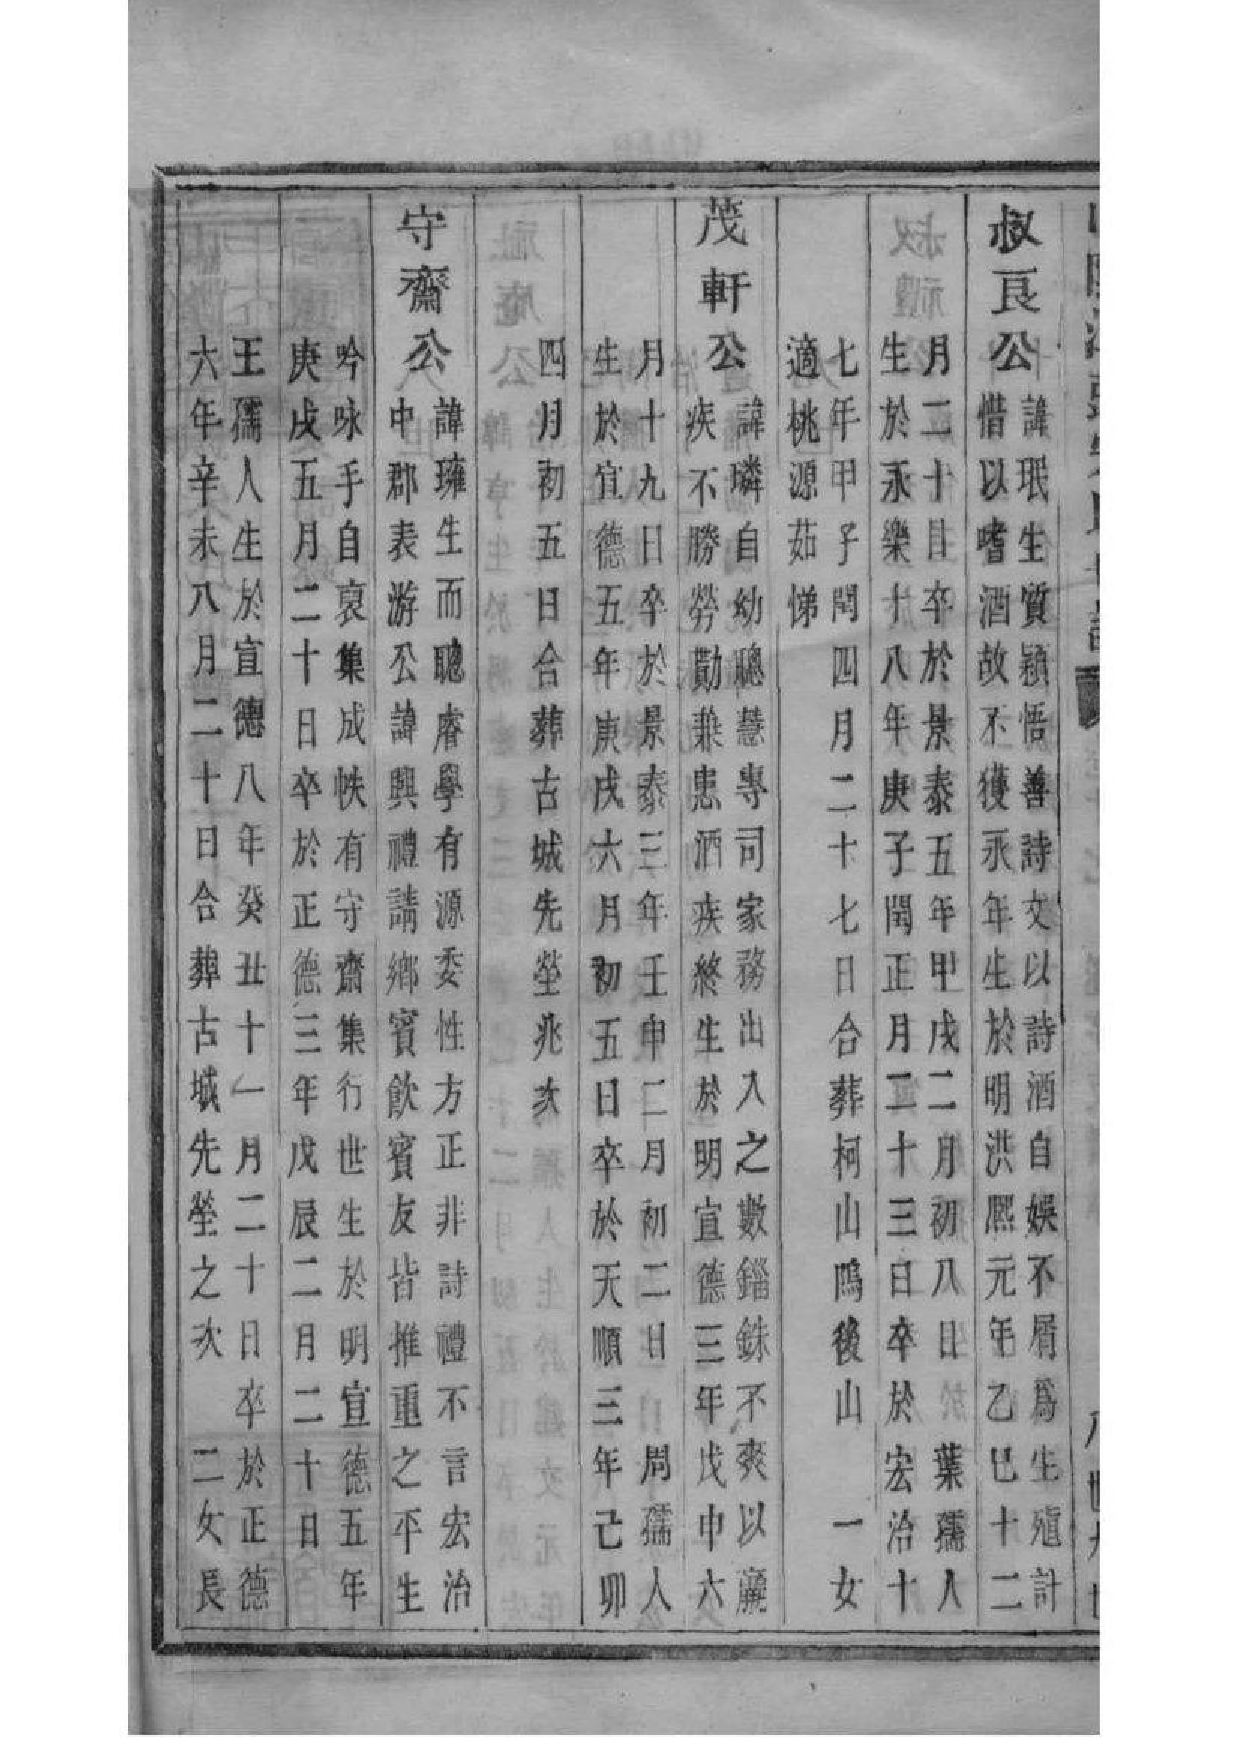 叔良公
諱珉生質穎悟善詩文以詩酒自娛不屑爲生殖計
惜以嗜酒故不獲永年生於明洪熙元年乙巳十二
月二十日卒於景泰五年甲戌二月初八日 葉孺人
生於永樂十八年庚子閏正月二十三日卒於宏治十
七年甲子閏四月二十七日合葬柯山隖後山 一女
適桃源茹悌
茂軒公
諱璘自幼聰慧專司家務出入之數錙銖不爽以羸
疾不勝勞勩兼患酒疾終生於明宣德三年戊申六
月十九日卒於景泰三年壬申二月初二日 周孺人
生於宣德五年庚戌六月初五日卒於天順三年己卯
四月初五日合葬古城先塋兆次
守齋公
諱瓘生而聰睿學有源委性方正非詩禮不言宏治
中郡表游公諱興禮請鄉賓飲賓友皆推重之平生
吟咏手自裒集成帙有守齋集行世生於明宣德五年
庚戌五月二十日卒於正德三年戊辰二月二十日
王孺人生於宣德八年癸丑十一月二十日卒於正德
六年辛未八月二十日合葬古城先塋之次 二女長